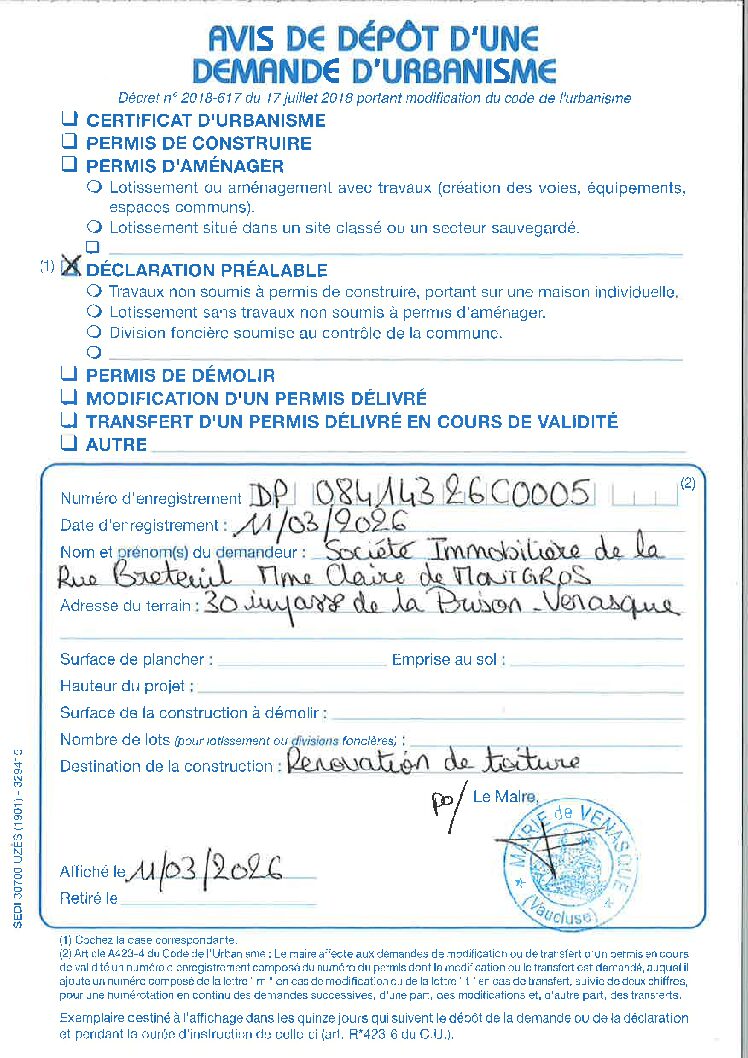 AVIS DE DÉPÔT D'UNE
DEMANDE D'URBANISME
Décret n° 2018-617 du 17 juillet 2018 portant modification du code de l'urbanisme
CERTIFICAT D'URBANISME
PERMIS DE CONSTRUIRE
PERMIS D'AMÉNAGER
Lotissement ou aménagement avec travaux (création des voies, équipements,
espaces communs).
Lotissement situé dans un site classé ou un secteur sauvegardé.
(1) X DÉCLARATION PRÉALABLE
Travaux non soumis à permis de construire, portant sur une maison individuelle.
Lotissement sans travaux non soumis à permis d'aménager.
Division foncière soumise au contrôle de la commune.
PERMIS DE DÉMOLIR
MODIFICATION D'UN PERMIS DÉLIVRÉ
TRANSFERT D'UN PERMIS DÉLIVRÉ EN COURS DE VALIDITÉ
AUTRE
Numéro d'enregistrement DP 084143 26C0005 (2)
Date d'enregistrement : 11/03/2026
Nom et prénom(s) du demandeur : Société Immobilière de la
Rue Breteuil Mme Claire de MONTGROS
Adresse du terrain : 30 impasse de la Prison - Venasque
Surface de plancher : Emprise au sol :
Hauteur du projet :
Surface de la construction à démolir :
Nombre de lots (pour lotissement ou divisions foncières) :
Destination de la construction : Renovation de toiture
po/ Le Maire,
MAIRIE de VENASQUE
(Vaucluse)
Affiché le 11/03/2026
Retiré le
SEDI 30700 UZÈS (1901) - 329415
(1) Cochez la case correspondante.
(2) Article A423-4 du Code de l'Urbanisme : Le maire affecte aux demandes de modification ou de transfert d'un permis en cours
de validité un numéro d'enregistrement composé du numéro du permis dont la modification ou le transfert est demandé, auquel il
ajoute un numéro composé de la lettre "m" en cas de modification ou de la lettre "t" en cas de transfert, suivie de deux chiffres,
pour une numérotation en continu des demandes successives, d'une part, des modifications et, d'autre part, des transferts.
Exemplaire destiné à l'affichage dans les quinze jours qui suivent le dépôt de la demande ou de la déclaration
et pendant la durée d'instruction de celle-ci (art. R*423-6 du C.U.).